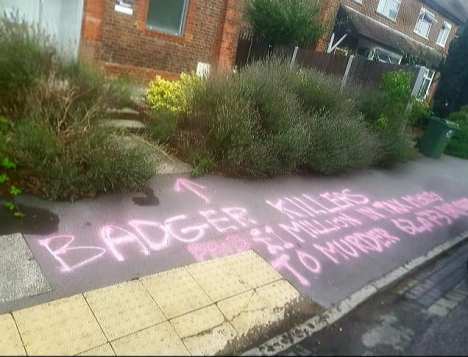 BADGER KILLERS
PAID £1 MILLION IN TAX MONIES
TO MURDER BADGERS